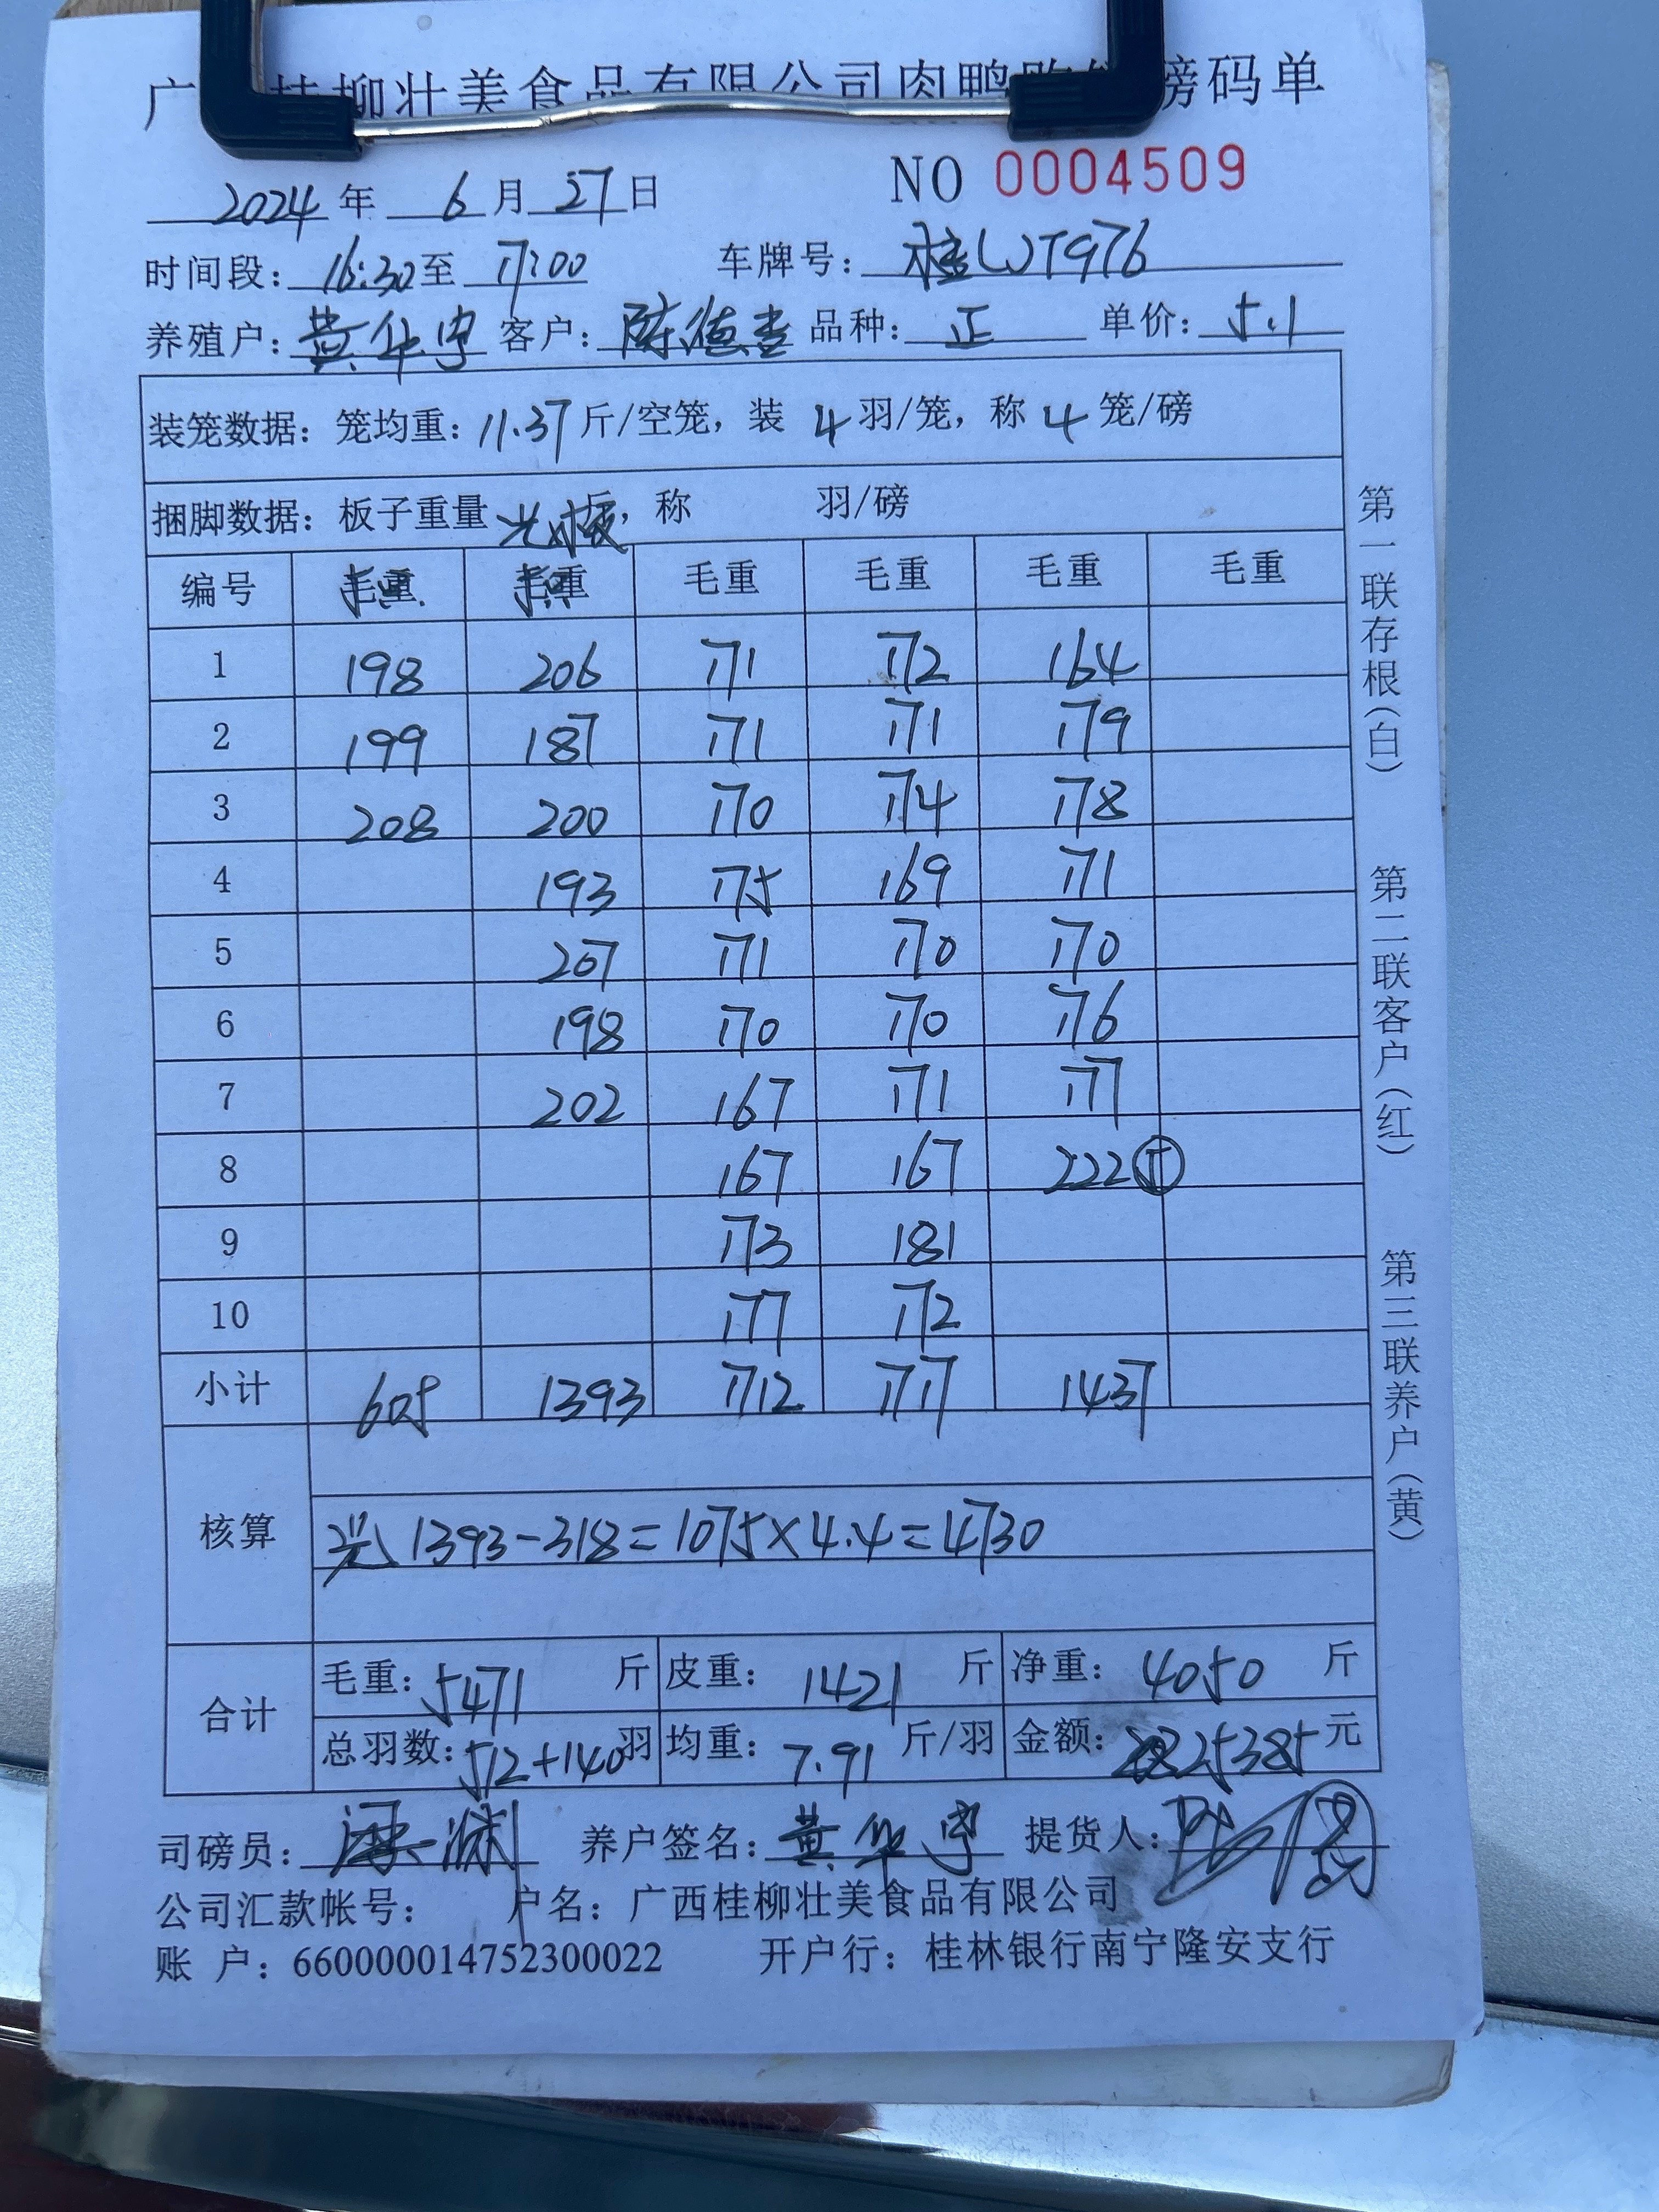 广 桂柳壮美食品有限公司肉鸭 磅码单
2024年 6月 27日 NO 0004509
时间段: 16:30至 17:00 车牌号: 桂WT976
养殖户: 黄华宇 客户: 陈德 品种: 正 单价: 5.1
装笼数据: 笼均重: 11.37斤/空笼, 装 4羽/笼, 称 4笼/磅
捆脚数据: 板子重量 斤, 称 羽/磅
编号 毛重 毛重 毛重 毛重 毛重 毛重
1 198 206 171 172 164
2 199 187 171 171 179
3 208 200 170 174 178
4 193 175 169 171
5 207 171 170 170
6 198 170 170 176
7 202 167 171 177
8 167 167 222 ⑤
9 173 181
10 177 172
小计 605 1393 1712 1717 1437
核算
光 1393-318=1075×4.4=4730
合计 毛重: 5471 斤 皮重: 1421 斤 净重: 4050 斤
总羽数: 512+140羽 均重: 7.91 斤/羽 金额: 25385元
司磅员: 养户签名: 黄华宇 提货人:
公司汇款帐号: 户名: 广西桂柳壮美食品有限公司
账 户: 660000014752300022 开户行: 桂林银行南宁隆安支行
第一联存根(白) 第二联客户(红) 第三联养户(黄)